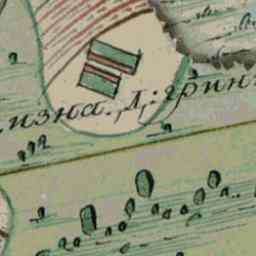 изна. Д: грин